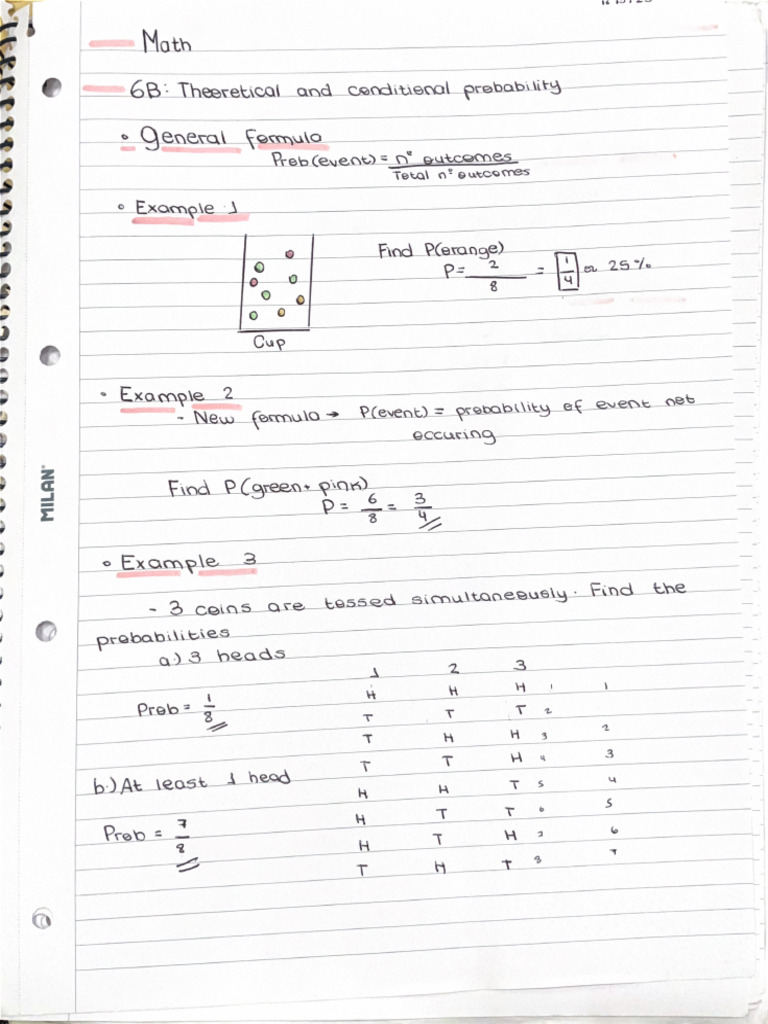 Math
6B: Theoretical and conditional probability
• General formula
Prob(event) = n° outcomes
Total n° outcomes
• Example 1
Find P(orange)
P = 2/8 = 1/4 or 25%
Cup
• Example 2
- New formula → P(event) = probability of event not
occuring
Find P(green + pink)
P = 6/8 = 3/4
MILAN
• Example 3
- 3 coins are tossed simultaneously. Find the
probabilities
a) 3 heads
1 2 3
H H H 1 1
Prob = 1/8
T T T 2
T H H 3 2
T T H 4 3
b.) At least 1 head
H H T 5 4
H T T 6 5
Prob = 7/8
H T H 7 6
T H T 8 7